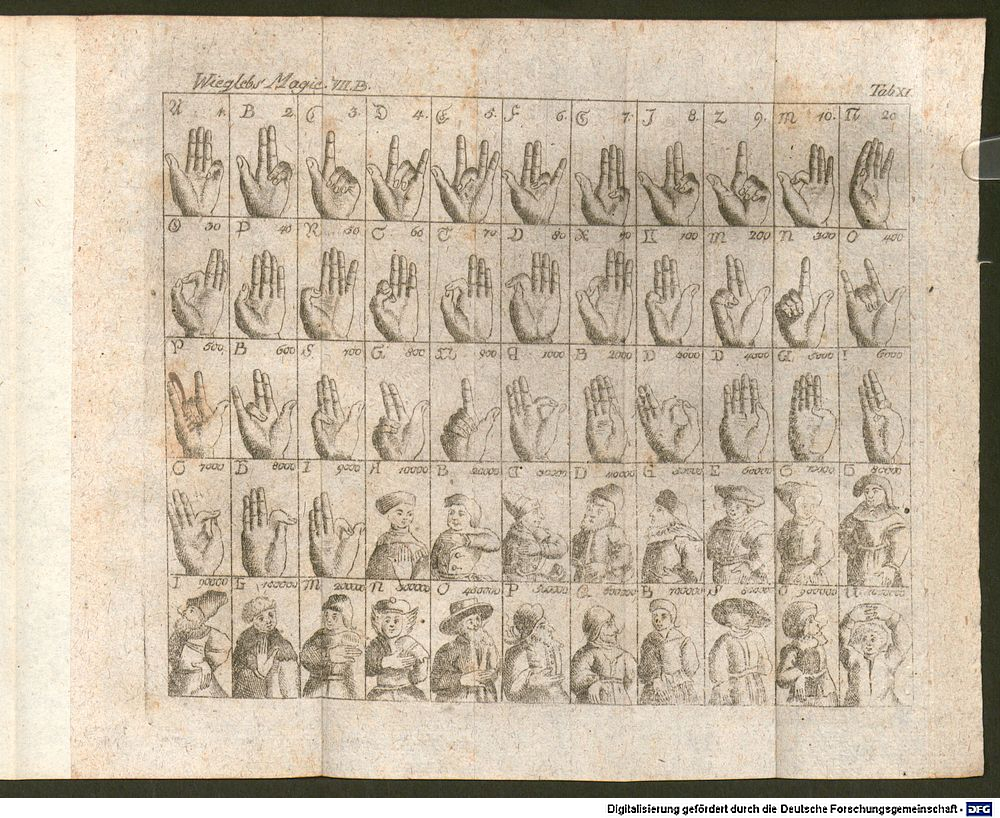 Wieglebs Magie. VII.B. Tab XI
A 1. B 2. C 3. D 4. E 5. F 6. G 7. J 8. L 9. M 10. N 20
O 30 P 40 R 50 S 60 T 70 80 X 90 100 M 200 N 300 O 400
P 500 B 600 S 700 G 800 900 1000 B 2000 3000 D 4000 5000 6000
C 7000 8000 I 9000 A 10000 B 20000 30000 D 40000 G 50000 E 60000 G 70000 80000
I 90000 100000 M 200000 N 300000 O 400000 P 500000 Q 600000 700000 S 800000 900000
Digitalisierung gefördert durch die Deutsche Forschungsgemeinschaft - DFG